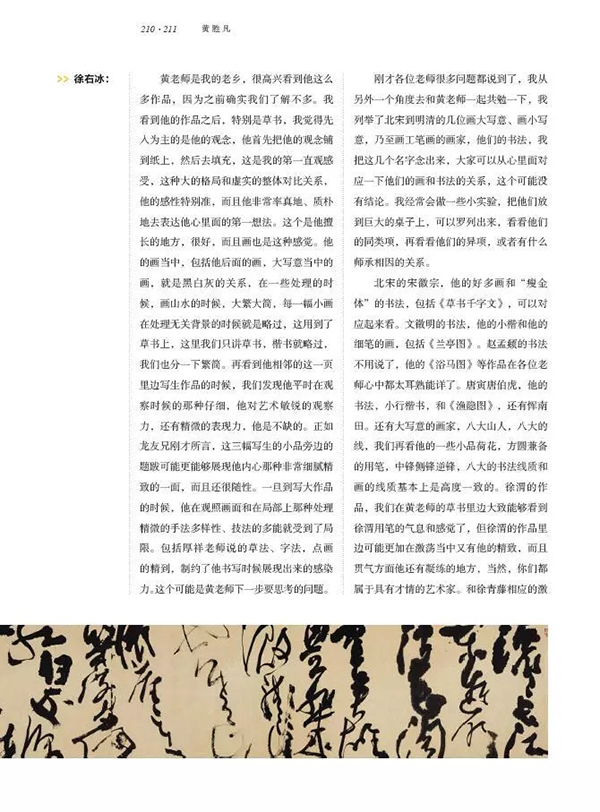 210·211 黄胜凡
>> 徐右冰：
黄老师是我的老乡，很高兴看到他这么
多作品，因为之前确实我们了解不多。我
看到他的作品之后，特别是草书，我觉得先
入为主的是他的观念，他首先把他的观念铺
到纸上，然后去填充，这是我的第一直观感
受，这种大的格局和虚实的整体对比关系，
他的感性特别准，而且他非常率真地、质朴
地去表达他心里面的第一想法。这个是他擅
长的地方，很好，而且画也是这种感觉。他
的画当中，包括他后面的画，大写意当中的
画，就是黑白灰的关系，在一些处理的时
候，画山水的时候，大繁大简，每一幅小画
在处理无关背景的时候就是略过，这用到了
草书上，这里我们只讲草书，楷书就略过，
我们也分一下繁简。再看到他相邻的这一页
里边写生作品的时候，我们发现他平时在观
察时候的那种仔细，他对艺术敏锐的观察
力，还有精微的表现力，他是不缺的。正如
龙友兄刚才所言，这三幅写生的小品旁边的
题跋可能更能够展现他内心那种非常细腻精
致的一面，而且还很随性。一旦到写大作品
的时候，他在观照画面和在局部上那种处理
精微的手法多样性、技法的多能就受到了局
限。包括厚祥老师说的草法、字法，点画
的精到，制约了他书写时候展现出来的感染
力。这个可能是黄老师下一步要思考的问题。
刚才各位老师很多问题都说到了，我从
另外一个角度去和黄老师一起共勉一下，我
列举了北宋到明清的几位画大写意、画小写
意，乃至画工笔画的画家，他们的书法，我
把这几个名字念出来，大家可以从心里面对
应一下他们的画和书法的关系，这个可能没
有结论。我经常会做一些小实验，把他们放
到巨大的桌子上，可以罗列出来，看看他们
的同类项，再看看他们的异项，或者有什么
师承相因的关系。
北宋的宋徽宗，他的好多画和“瘦金
体”的书法，包括《草书千字文》，可以对
应起来看。文徵明的书法，他的小楷和他的
细笔的画，包括《兰亭图》。赵孟頫的书法
不用说了，他的《浴马图》等作品在各位老
师心中都太耳熟能详了。唐寅唐伯虎，他的
书法，小行楷书，和《渔隐图》，还有恽南
田。还有大写意的画家，八大山人，八大的
线，我们再看他的一些小品荷花，方圆兼备
的用笔，中锋侧锋逆锋，八大的书法线质和
画的线质基本上是高度一致的。徐渭的作
品，我们在黄老师的草书里边大致能够看到
徐渭用笔的气息和感觉了，但徐渭的作品里
边可能更加在激荡当中又有他的精致，而且
贯气方面他还有凝练的地方，当然，你们都
属于具有才情的艺术家。和徐青藤相应的激